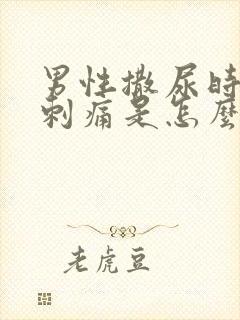 男性撒尿時
刺痛是怎麼
老虎豆